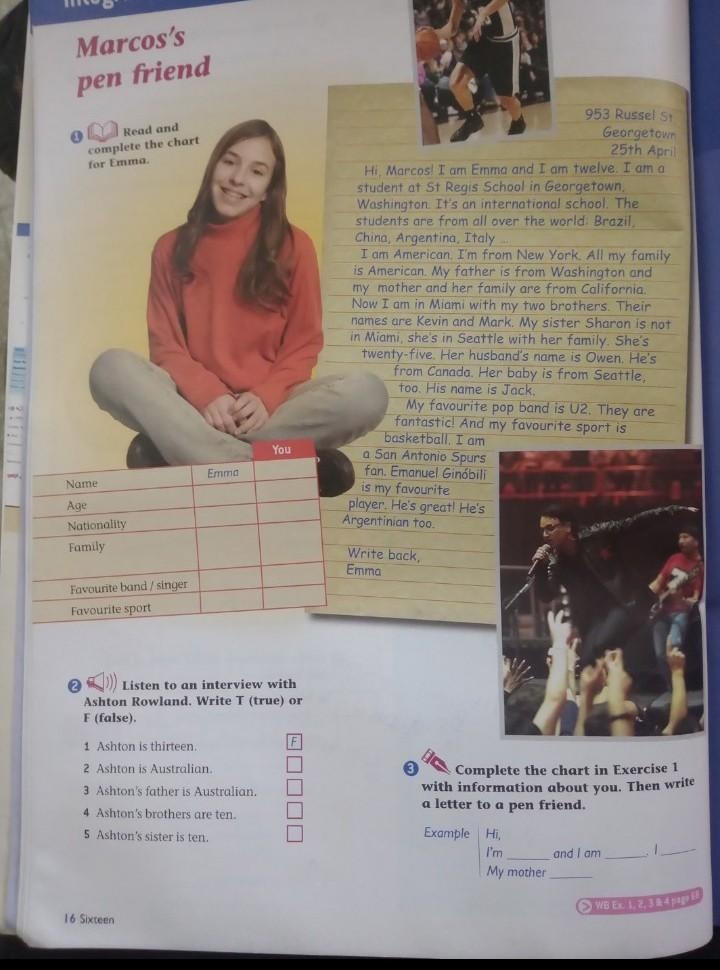 Marcos's
pen friend
1 Read and
complete the chart
for Emma.
953 Russel St
Georgetown
25th April
Hi, Marcos! I am Emma and I am twelve. I am a
student at St Regis School in Georgetown,
Washington. It's an international school. The
students are from all over the world: Brazil,
China, Argentina, Italy ...
I am American. I'm from New York. All my family
is American. My father is from Washington and
my mother and her family are from California.
Now I am in Miami with my two brothers. Their
names are Kevin and Mark. My sister Sharon is not
in Miami, she's in Seattle with her family. She's
twenty-five. Her husband's name is Owen. He's
from Canada. Her baby is from Seattle,
too. His name is Jack.
My favourite pop band is U2. They are
fantastic! And my favourite sport is
basketball. I am
a San Antonio Spurs
fan. Emanuel Ginóbili
is my favourite
player. He's great! He's
Argentinian too.
Write back,
Emma
You
Name Emma
Age
Nationality
Family
Favourite band / singer
Favourite sport
2 Listen to an interview with
Ashton Rowland. Write T (true) or
F (false).
1 Ashton is thirteen. F
2 Ashton is Australian.
3 Ashton's father is Australian.
4 Ashton's brothers are ten.
5 Ashton's sister is ten.
3 Complete the chart in Exercise 1
with information about you. Then write
a letter to a pen friend.
Example Hi,
I'm ______ and I am ______. I ______
My mother ______
WB Ex. 1, 2, 3 & 4 page
16 Sixteen